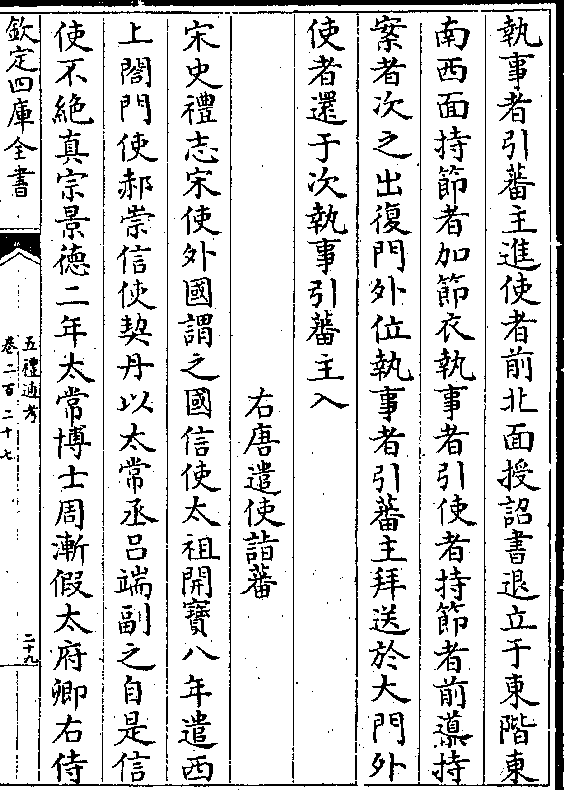 執事者引蕃主進使者前北面授詔書退立于東階東
南西面持節者加節衣執事者引使者持節者前導持
案者次之出復門外位執事者引蕃主拜送於大門外
使者還于次執事引蕃主入
右唐遣使詣蕃
宋史禮志宋使外國謂之國信使太祖開寶八年遣西
上閤門使郝崇信使契丹以太常丞呂端副之自是信
使不絶真宗景德二年太常博士周漸假太府卿右侍
欽定四庫全書
五禮通考
卷二百二十七
二十九